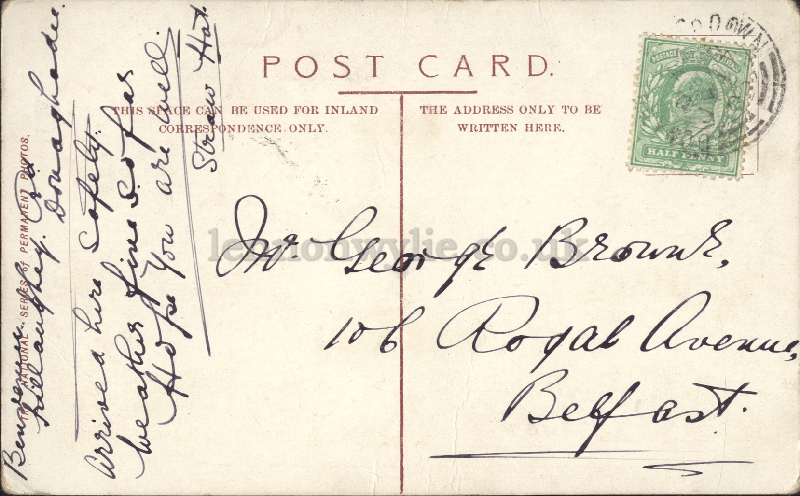 POST CARD.
THIS SPACE CAN BE USED FOR INLAND
CORRESPONDENCE ONLY.
THE ADDRESS ONLY TO BE
WRITTEN HERE.
HALF PENNY
Mr George Brown,
106 Royal Avenue,
Belfast.
Donaghadee
Arrived here safely.
Weather fine so far
Hope you are well.
Straw Hat.
THE NATIONAL SERIES of PERMANENT PHOTOS.
lennonwylie.co.uk